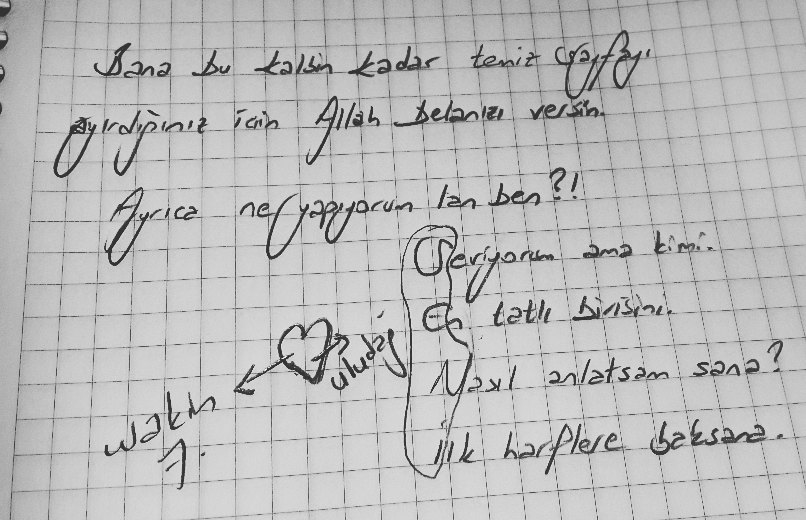 Bana bu kalsin kadar temiz sayfayı
ayırdığınız için Allah belanızı versin.
Ayrıca ne yapıyorum lan ben?!
Seviyorum ama kimi.
En tatlı birisini.
Nasıl anlatsam sana?
İlk harflere baksana.
uludağ
wakin
1.